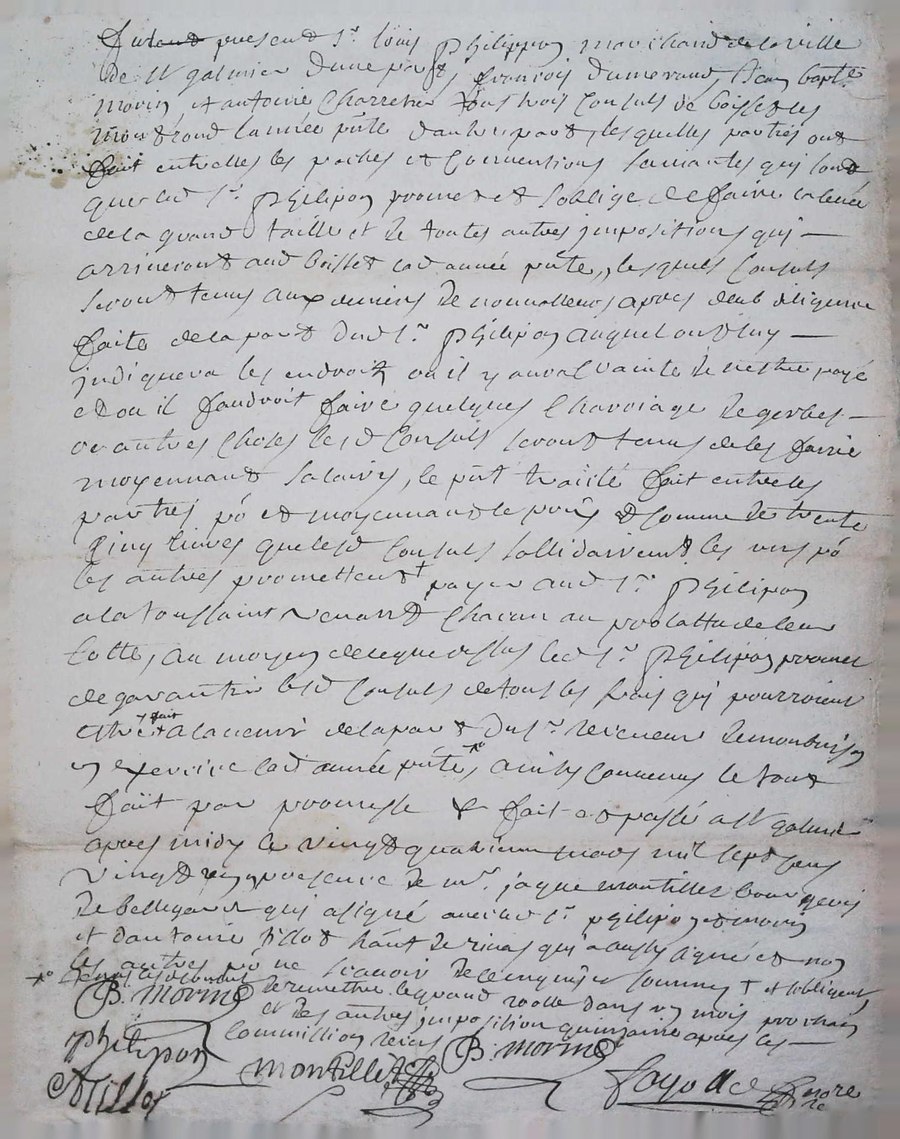 Furent present Sr. louis Philippon marchand de la ville
de St galmier d'une part, françois dumerand, Jean bapte
morin, et antoine Charretier tous trois Consuls de boisset les
montrond lannée pnte d'autre part, lesquelles parties ont
fait entr'elles les pactes et Conventions suivantes qui sont
que led Sr. Philipon promet et s'oblige de faire la levée
de la grand taille et de toutes autres impositions qui
arriveront aud boisset lad année pnte, lesquels Consuls
seront tenus aux deniers de nonvalleurs apres deub diligence
faite de la part dud Sr. Philipon auquel
indiquera les endroits ou il y aura Crainte de nestre payé
et ou il faudroit faire quelques Charroiage de gerbes
ou autres Choses lesd Consuls seront tenus de les faire
moyennant salaire, le pnt traitté fait entre les
parties po et moyennant le prix et somme de trente
Cinq livres que lesd Consuls sollidairement les uns po
les autres promettent + payer aud Sr. Philipon
a la toussaint venant Chacun au prolatta de leur
Cotte, au moyen de ce que dessus led Sr. Philipon promet
de garantir lesd Consuls de tous les frais qui pourroient
estre + fait a lavenir de la part du Sr. receveur de montbrison
en exercice lad année pnte, ainsy Convenus le tout
fait par promesse & fait et passé a St galmier
apres midy le vingt quatrieme mars mil sept cens
vingt en presence de mr. jaque montillet bourgeois
de bellegarde qui a signé avec led Sr. philipon et morin
et d'antoine tillot de rivas qui a aussy signé et non
les autres po ne scavoir de ce enquis et sommes + et sobligent
de remettre le grand roolle dans un mois prochain
et des autres imposition quinzaine apres les
Commissions
B. Morin
philipon
montillet
B. Morin
Atillot
fayolle